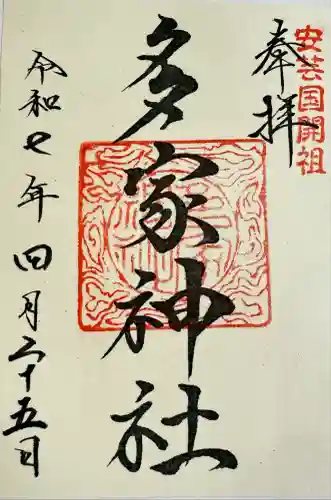 安芸国開祖
奉拝
多家神社
令和七年四月二十五日